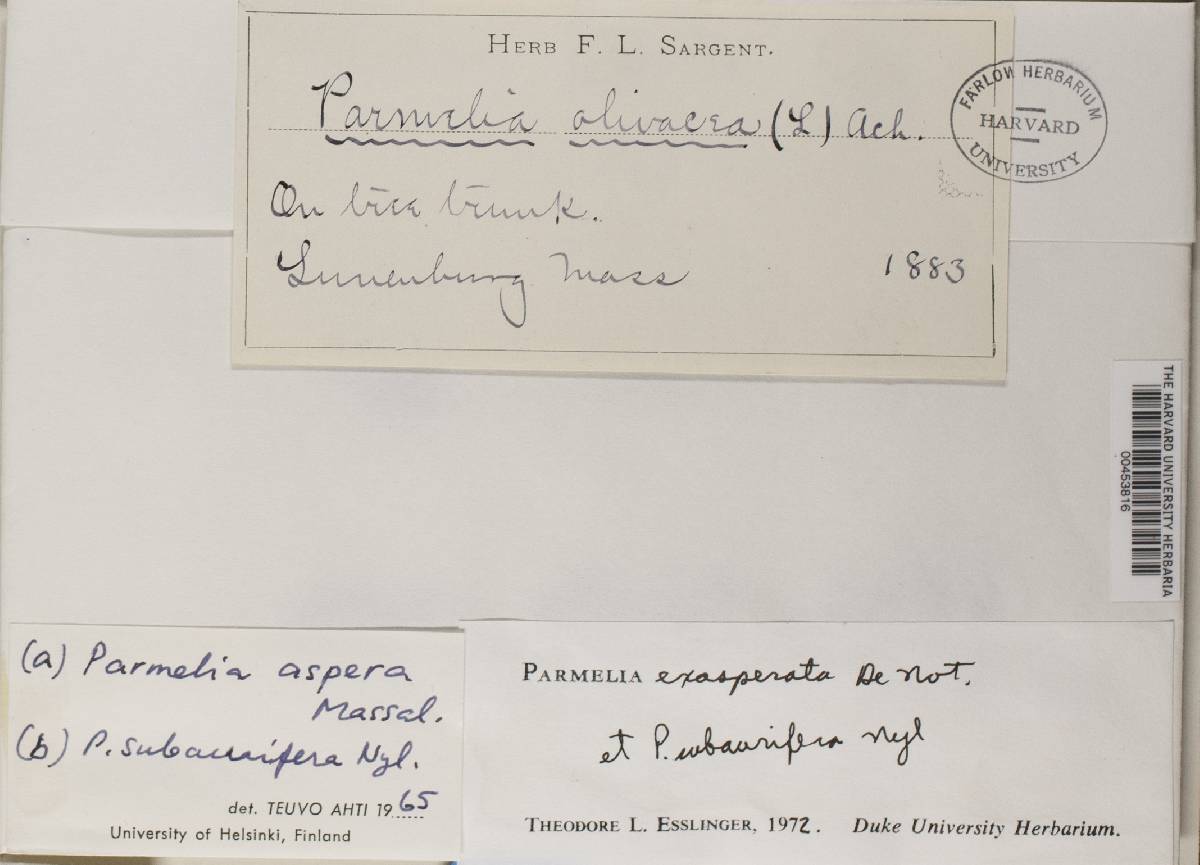 HERB F. L. SARGENT.
Parmelia olivacea (L) Ach.
On tree trunk.
Lunenburg Mass 1883
FARLOW HERBARIUM
HARVARD
UNIVERSITY
THE HARVARD UNIVERSITY HERBARIA
00453816
(a) Parmelia aspera
Massal.
(b) P. subaurifera Nyl.
det. TEUVO AHTI 1965
University of Helsinki, Finland
PARMELIA exasperata De Not.
et P. subaurifera Nyl
THEODORE L. ESSLINGER, 1972. Duke University Herbarium.